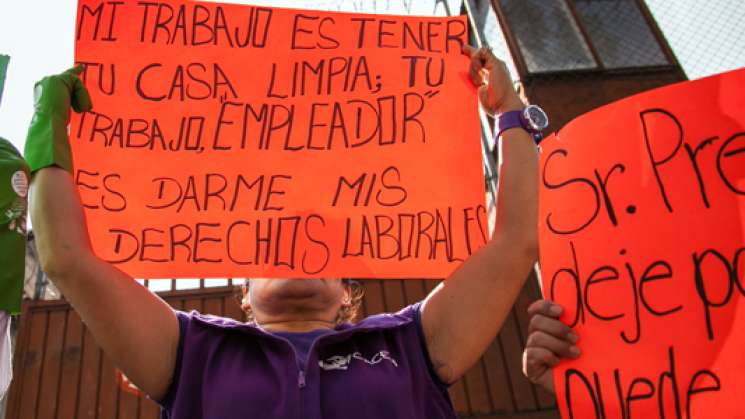 MI TRABAJO ES TENER
TU CASA LIMPIA; TU
TRABAJO, "EMPLEADOR"
ES DARME MIS
DERECHOS LABORALES
Sr. Pre
deje po
puede